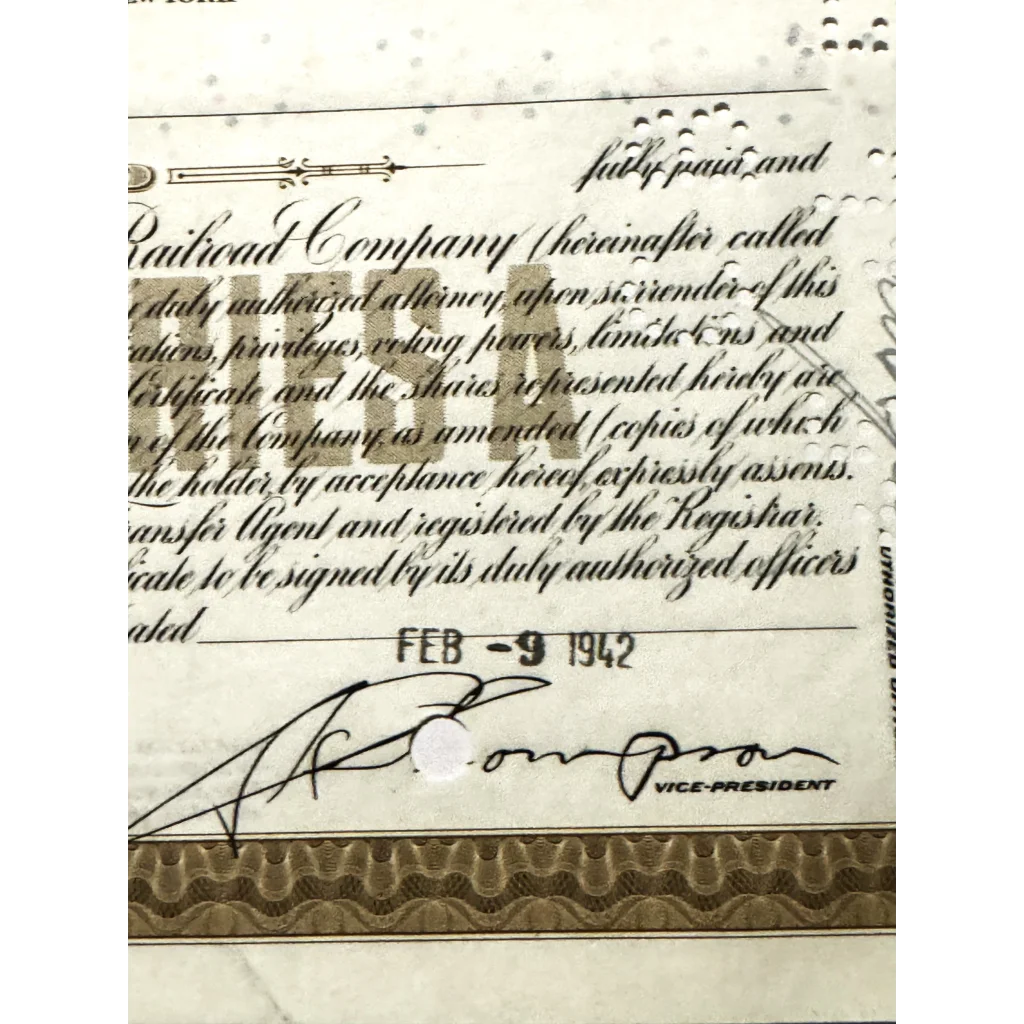 fully paid, and
Railroad Company (hereinafter called
duly authorized attorney, upon surrender of this
privileges, voting powers, limitations and
Certificate and the shares represented hereby are
of the Company, as amended (copies of which
the holder, by acceptance hereof, expressly assents.
Transfer Agent and registered by the Registrar.
to be signed by its duly authorized officers
SERIES A
FEB -9 1942
Thompson
VICE-PRESIDENT